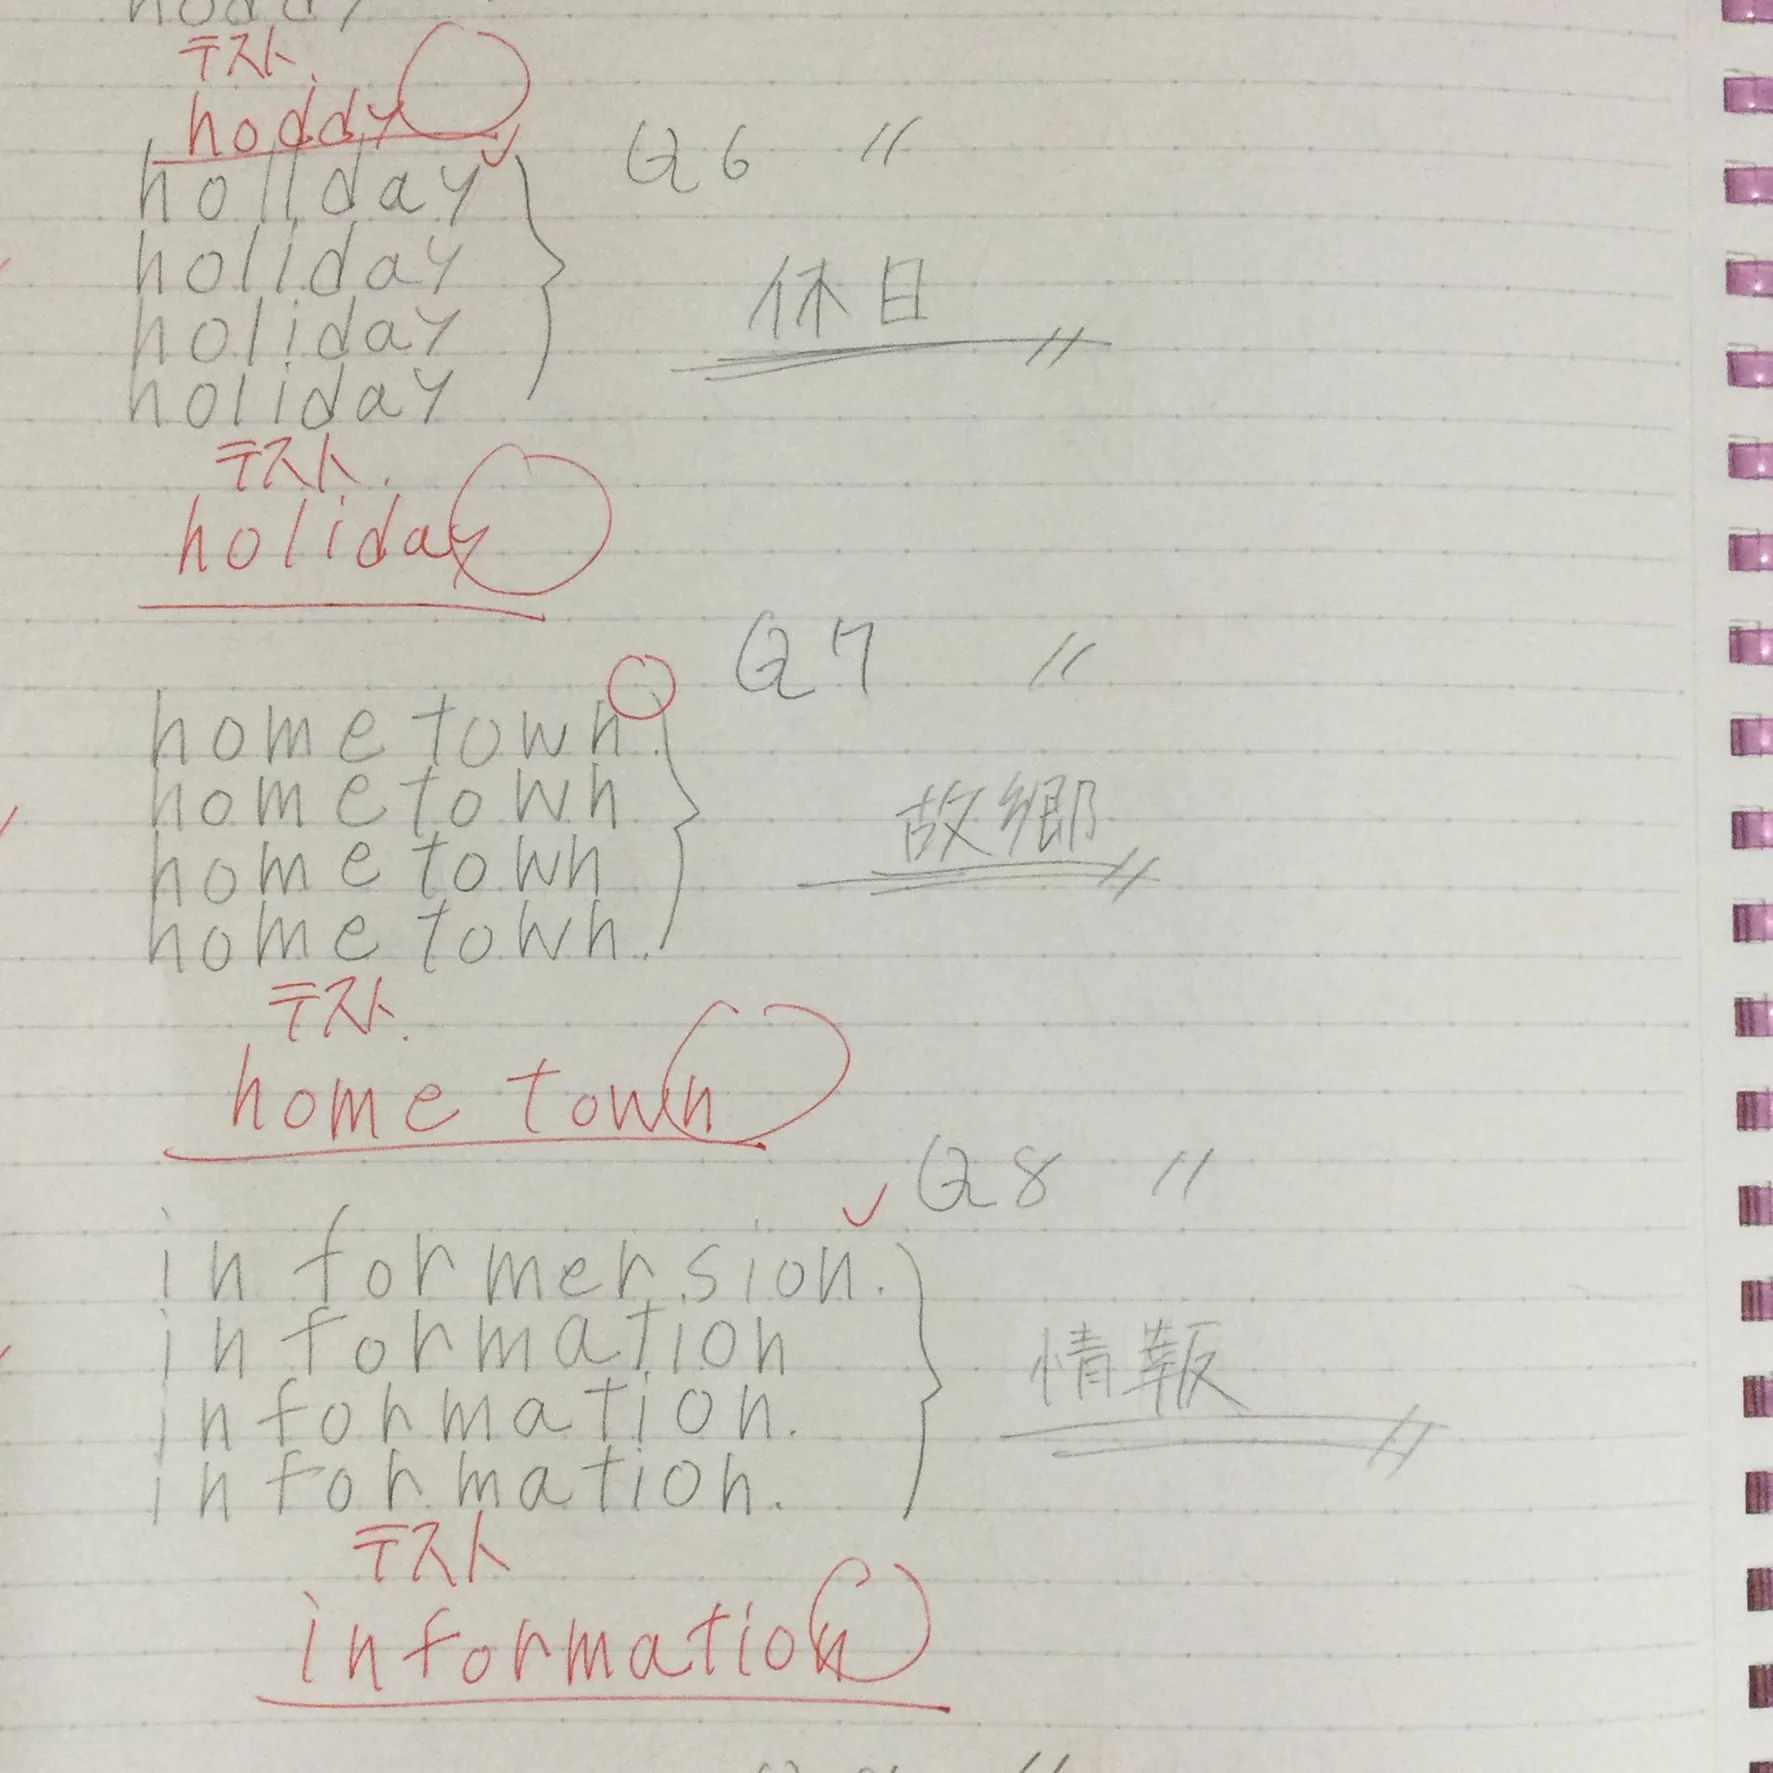 hoddy
テスト.
hoddy
Q6 〃
holiday
holiday
holiday
holiday
休日
テスト.
holiday
Q7 〃
home town.
home town
home town
home town.
故郷
テスト.
home town
Q8 〃
in formersion.
in formation
information.
information.
情報
テスト
information